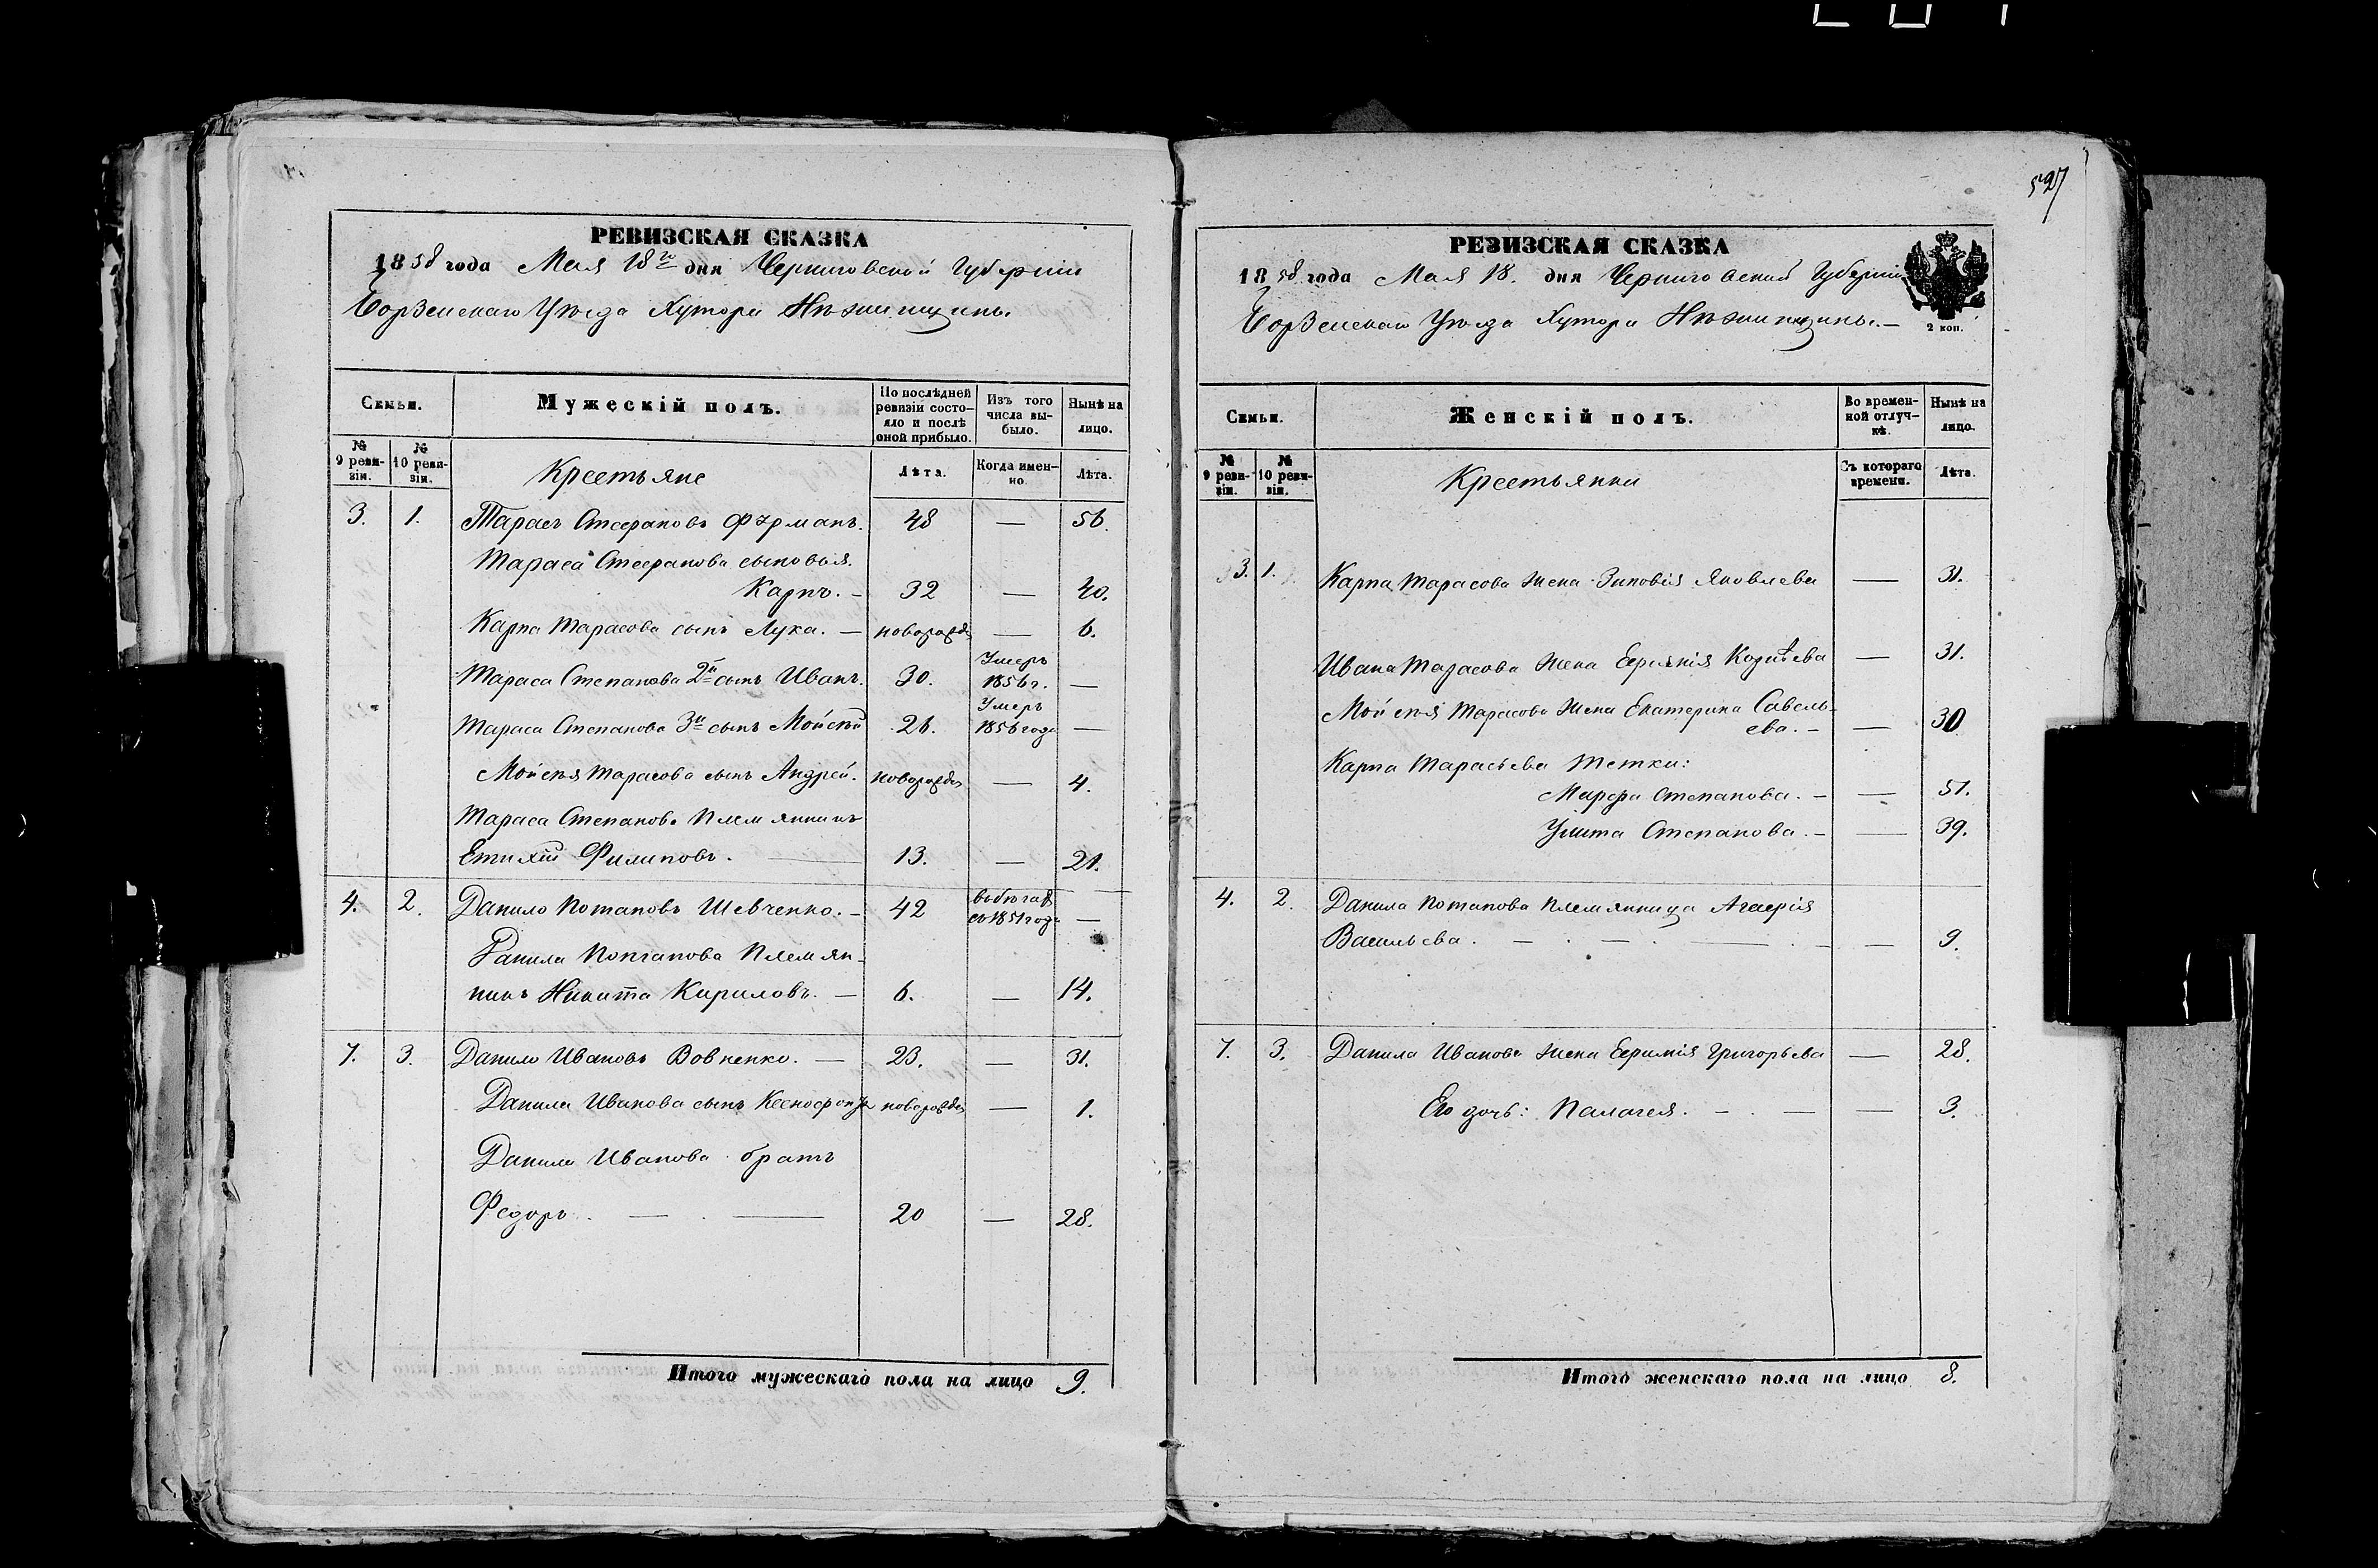 527
РЕВИЗСКАЯ СКАЗКА
1858 года Мая 18го дня Черниговской Губернии
Борзенскаго Уѣзда Хутора Нѣжинщины.
Семьи.
Мужескій полъ.
По послѣдней ревизіи состояло и послѣ оной прибыло.
Изъ того числа выбыло.
Нынѣ на лицо.
№ 9 ревизіи.
№ 10 ревизіи.
Крестьяне
Лѣта.
Когда именно
Лѣта.
3. 1. Тарасъ Стефановъ Фурманъ. 48 — 56.
Тараса Стефанова сыновья.
Карпъ. — 32 — 40.
Карпа Тарасова сынъ Лука. — новорожд — 6.
Тараса Степанова 2й сынъ Иванъ. 30. Умеръ 1856 г. —
Тараса Степанова 3й сынъ Мойсѣй 26. Умеръ 1856 года —
Мойсѣя Тарасова сынъ Андрей. новорожд — 4.
Тараса Степанова племянникъ
Филиповъ. — 13. — 21.
4. 2. Данило Потаповъ Шевченко. — 42 въ бѣгах съ 1851 года —
Данила Потапова племян-
никъ Никита Кириловъ. — 6. — 14.
7. 3. Данило Ивановъ Вовненко. — 23. — 31.
Данила Иванова сынъ Ксенофонтъ новорожд — 1.
Данила Иванова братъ
Федоръ. — 20 — 28.
Итого мужескаго пола на лицо 9.
РЕВИЗСКАЯ СКАЗКА
1858 года Мая 18. дня Черниговской Губерніи
Борзенскаго Уѣзда Хутора Нѣжинщины. —
2 коп.
Семьи.
Женскій полъ.
Во временной отлучкѣ.
Нынѣ на лицо.
№ 9 ревизіи.
№ 10 ревизіи.
Крестьянки
Съ котораго времени.
Лѣта.
3. 1. Карпа Тарасова жена Зиновія Яковлева — 31.
Ивана Тарасова жена Евфимія — 31.
Мойсѣя Тарасова жена Екатерина Савель-
ева. — — 30
Карпа Тарасьева тетки:
Марфа Степанова. — — 51.
Улита Степанова. — — 39.
4. 2. Данила Потапова племянница Агафія
Васильева. — — — — 9.
7. 3. Данила Иванова жена Евфимія Григорьева — 28.
Его дочь: Палагея. — — — 3.
Итого женскаго пола на лицо 8.